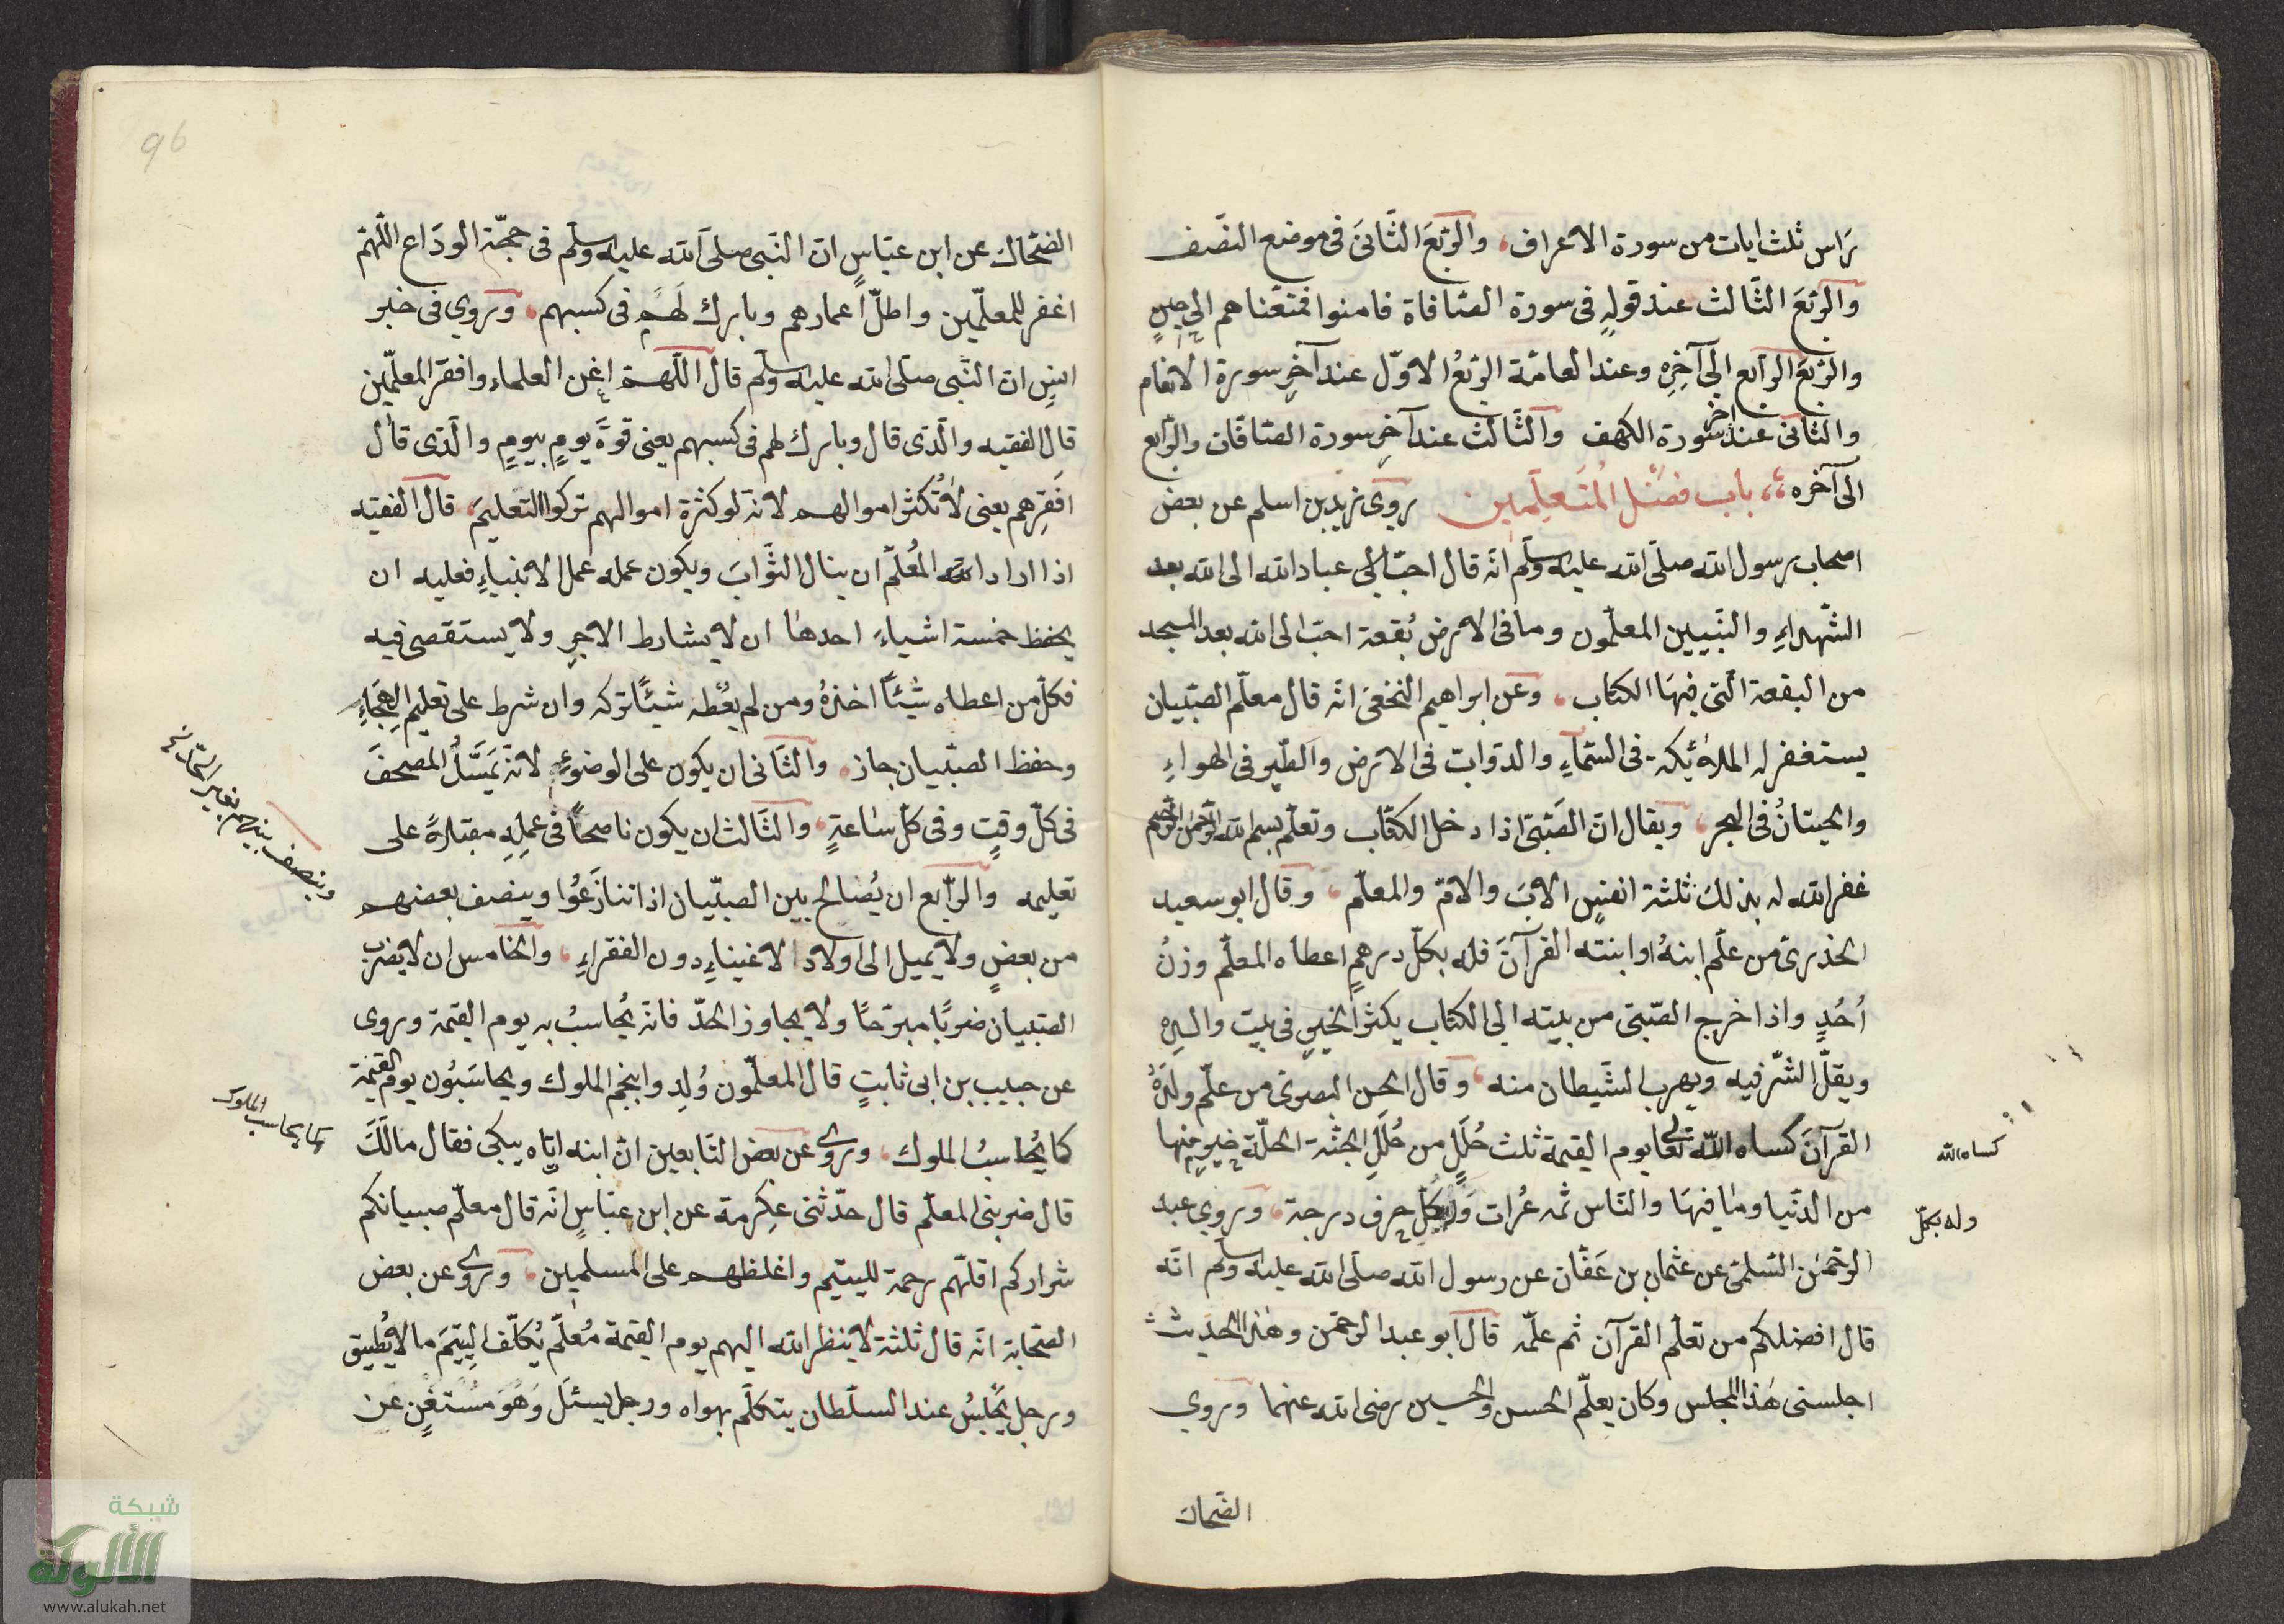 براس ثلث ايات من سورة الاعراف، والربع الثانى فى موضع النصف
والربع الثالث عند قوله فى سورة الصافاة فامنوا فمتعناهم الى حين
والربع الرابع الى آخره وعند العامة الربع الاول عند آخر سورة الانعام
والثانى عند آخر سورة الكهف والثالث عند آخر سورة الصافات والرابع
الى آخره، باب فضل المتعلمين روى زيد بن اسلم عن بعض
اصحاب رسول الله صلى الله عليه وسلم انه قال احب الى عباد الله الى الله بعد
الشهداء والنبيين المعلمون وما فى الارض بقعة احب الى الله بعد المسجد
من البقعة التى فيها الكتاب، وعن ابراهيم النخعى انه قال معلم الصبيان
يستغفر له الملائكه فى السماء والدواب فى الارض والطير فى الهواء
والحيتان فى البحر، ويقال ان الصبى اذا دخل الكتاب وتعلم بسم الله الرحمن الرحيم
غفر الله له بذلك ثلثة انفس الاب والام والمعلم، وقال ابو سعيد
الخذرى من علم ابنه او ابنته القرآن فله بكل درهم اعطاه المعلم وزن
أحد واذا خرج الصبى من بيته الى الكتاب يكثر الخير فى بيت والده
ويقل الشر فيه ويهرب الشيطان منه، وقال الحسن البصرى من علم ولده
القرآن كساه الله تعالى يوم القيمة ثلث حلل من حلل الجنة الحلة خير منها
من الدنيا وما فيها والناس ثمه عرات ولكل حرف درجة، وروي عبد
الرحمن السلمى عن عثمان بن عفان عن رسول الله صلى الله عليه وسلم انه
قال افضلكم من تعلم القرآن ثم علمه قال ابو عبد الرحمن وهذا الحديث
اجلسنى هذا المجلس وكان يعلم الحسن والحسين رضى الله عنهما وروي
الضحاك
كساه الله
وله بكل
96
الضحاك عن ابن عباس ان النبى صلى الله عليه وسلم فى حجة الوداع اللهم
اغفر للمعلمين واطل اعمارهم وبارك لهم فى كسبهم، وروي فى خبر
انس ان النبى صلى الله عليه وسلم قال اللهم اغن العلماء وافقر المعلمين
قال الفقيه والذى قال وبارك لهم فى كسبهم يعنى قوة يوم بيوم والذى قال
افقرهم يعنى لا تكثر اموالهم لانه لو كثرة اموالهم تركوا التعليم، قال الفقيه
اذا اراد الله المعلم ان ينال الثواب ويكون عمله عمل الانبياء فعليه ان
يحفظ خمسة اشياء احدها ان لا يشارط الاجر ولا يستقصى فيه
فكل من اعطاه شيئا اخذه ومن لم يعطه شيئا تركه وان شرط على تعليم الهجاء
وحفظ الصبيان جاز، والثانى ان يكون على الوضوء لانه يمس المصحف
فى كل وقت وفى كل ساعة، والثالث ان يكون ناصحا فى عمله مقبلا على
تعليمه والرابع ان يصالح بين الصبيان اذا تنازعوا وينصف بعضهم
من بعض ولا يميل الى اولاد الاغنياء دون الفقراء، والخامس ان لا يضرب
الصبيان ضربا مبرحا ولا يجاوز الحد فانه يحاسب به يوم القيمة وروى
عن حبيب بن ابى ثابت قال المعلمون ولدوا بنجم الملوك ويحاسبون يوم القيمة
كما يحاسب الملوك، وروى عن بعض التابعين ان ابنه اتاه يبكى فقال مالك
قال ضربنى المعلم قال حدثنى عكرمة عن ابن عباس انه قال معلم صبيانكم
شراركم اقلهم رحمة لليتيم واغلظهم على المسلمين، وروى عن بعض
الصحابة انه قال ثلثة لا ينظر الله اليهم يوم القيمة معلم يكلف اليتيم ما لا يطيق
ورجل يجلس عند السلطان يتكلم بهواه ورجل يسئل وهو مستغن عن
كما يحاسب الملوك
شبكة
الألوكة
www.alukah.net